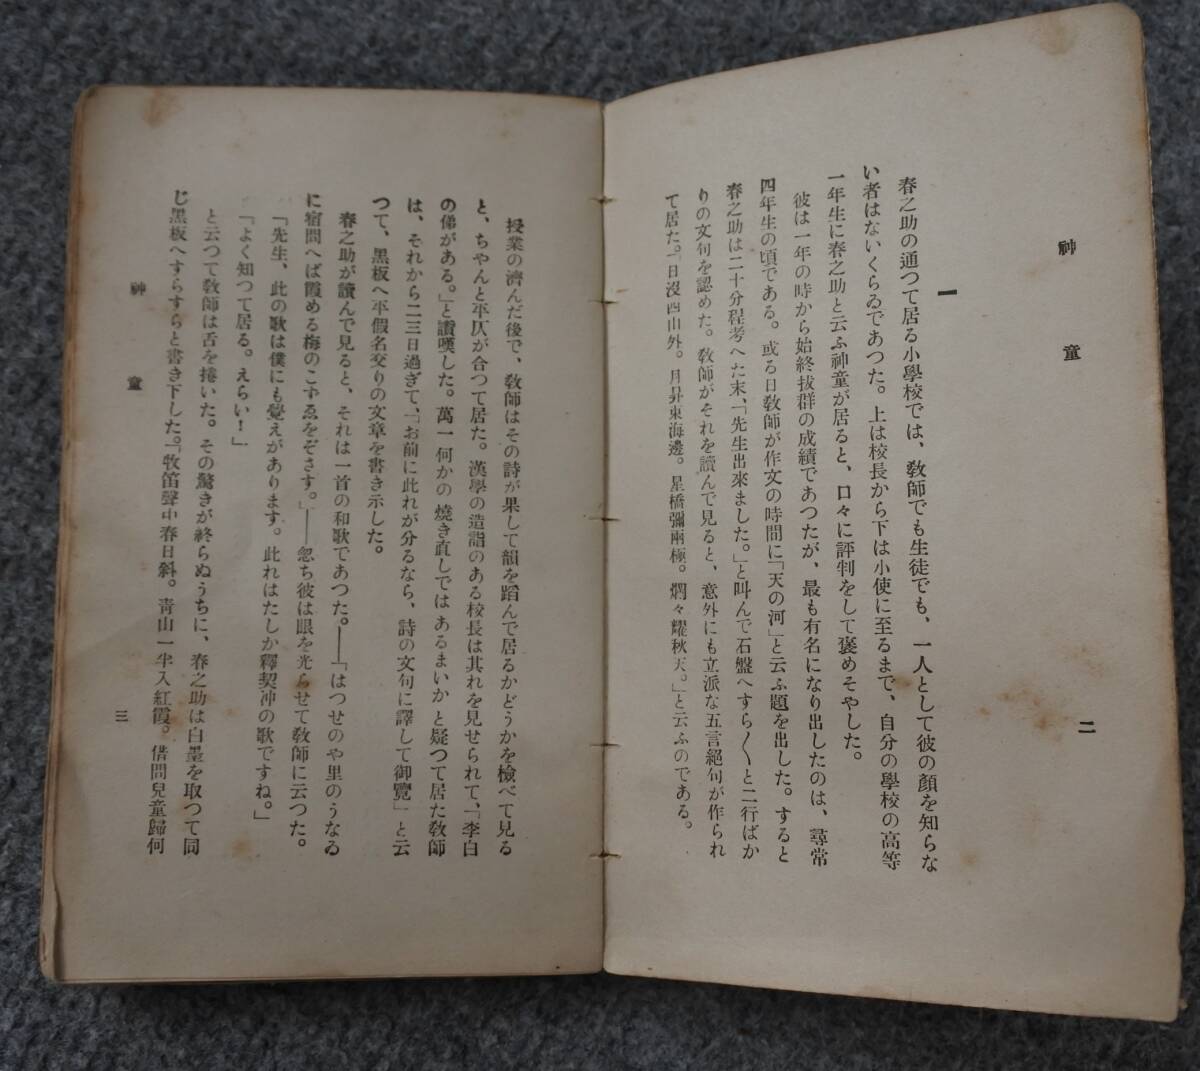 神童
二
一
春之助の通つて居る小學校では、教師でも生徒でも、一人として彼の顏を知らな
い者はないくらゐであつた。上は校長から下は小使に至るまで、自分の學校の高等
一年生に春之助と云ふ神童が居ると、口々に評判をして褒めそやした。
彼は一年の時から始終拔群の成績であつたが、最も有名になり出したのは、尋常
四年生の頃である。或る日教師が作文の時間に「天の河」と云ふ題を出した。すると
春之助は二十分程考へた末、「先生出來ました。」と叫んで石盤へすら〱と二行ばか
りの文句を認めた。教師がそれを讀んで見ると、意外にも立派な五言絕句が作られ
て居た。「日沒西山外。月昇東海邊。星橋彌兩極。爛々耀秋天。」と云ふのである。
授業の濟んだ後で、教師はその詩が果して韻を蹈んで居るかどうかを檢べて見る
と、ちやんと平仄が合つて居た。漢學の造詣のある校長は其れを見せられて、「李白
の俤がある。」と讚嘆した。萬一何かの燒き直しではあるまいかと疑つて居た教師
は、それから二三日過ぎて、「お前に此れが分るなら、詩の文句に譯して御覽」と云
つて、黑板へ平假名交りの文章を書き示した。
春之助が讀んで見ると、それは一首の和歌であつた。――「はつせのや里のうなゐ
に宿問へば霞める梅のこずゑをぞさす。」――忽ち彼は眼を光らせて教師に云つた。
「先生、此の歌は僕にも覺えがあります。此れはたしか釋契沖の歌ですね。」
「よく知つて居る。えらい！」
と云つて教師は舌を捲いた。その驚きが終らぬうちに、春之助は白墨を取つて同
じ黑板へすらすらと書き下した。「牧笛聲中春日斜。靑山一半入紅霞。借問兒童歸何
神童
三